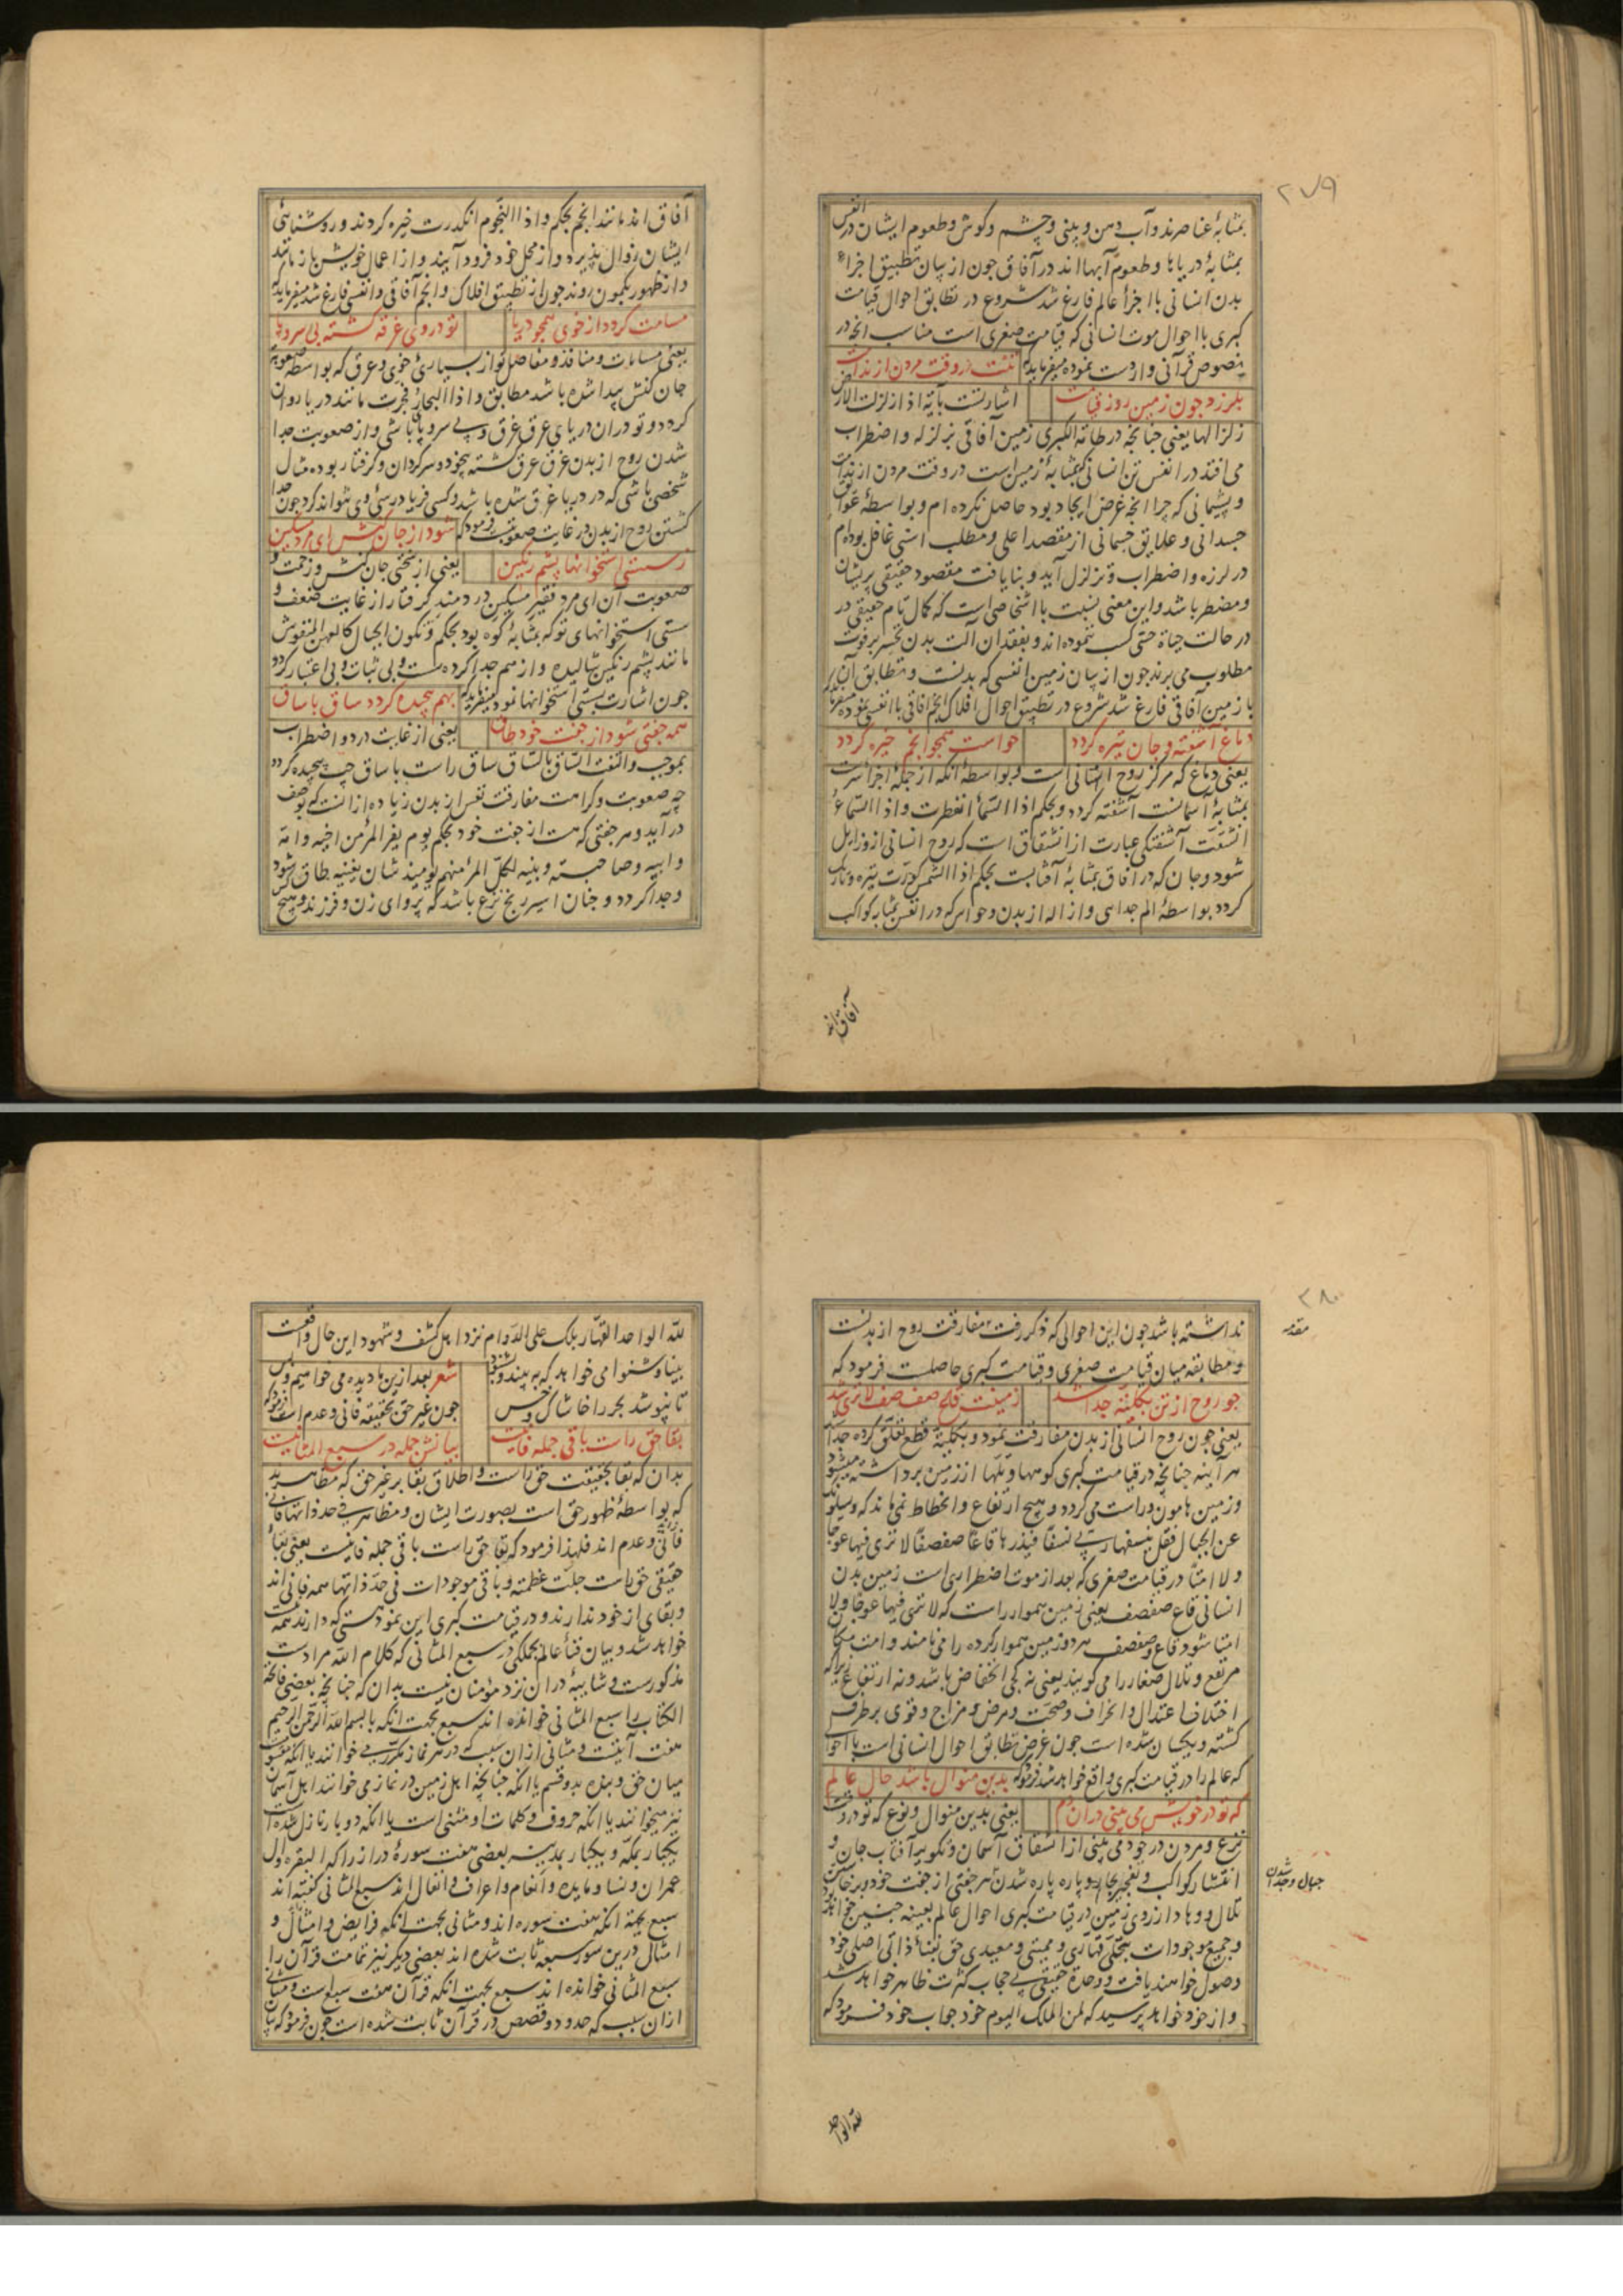 ۲۷۹
بمثابهٔ عناصرند و آب دهن و بینی و چشم و کوش و طعوم ایشان در انفس
بمثابهٔ دریاها و طعوم آبها اند در آفاق جون از بیان تطبیق اجزاء
بدن انسانی با اجزأ عالم فارغ شد شروع در تطابق احوال قیامت
کبری با احوال موت انسانی که قیامت صغری است مناسب انجه در
نصوص قرآنی وارد ست نموده میفرماید که تنت در وقت مردن از ندامت
بلرزد جون زمین روز قیامت اشارتست بآیه اذا زلزلت الارض
زلزالها یعنی جنانجه در طامة الکبری زمین آفاقی بزلزله و اضطراب
می افتد در انفس تن انسانی که بمثابهٔ زمین است در وقت مردن از ندامت
و پشیمانی که جرا انجه غرض ایجاد بود حاصل نکرده ام و بواسطهٔ عوایق
جسدانی و علایق جسمانی از مقصد اعلی و مطلب اسنی غافل بوده ام
در لرزه و اضطراب و تزلزل آید و بنایافت مقصود حقیقی پریشان
و مضطر باشد و این معنی نسبت با اشخاصی است که کمال تام حقیقی در
در حالت حیاة حسی کسب ننموده اند و بفقدان آلت بدن تحسر بر فوت
مطلوب می برند جون از بیان زمین انفسی که بدنست و تطابق آن
با زمین آفاقی فارغ شد شروع در تطبیق احوال افلاک و انجم آفاقی با انفسی نموده
دماغ آشفته و جان تیره کردد حواست همجو انجم خیره کردد
یعنی دماغ که مرکز روح انسانی است و بواسطهٔ آنکه از جملهٔ اجزا
بمثابهٔ آسمانست آشفته کردد و بحکم اذا السمأ انفطرت و اذا السماء
انشقت آشفتکی عبارت از انشقاق است که روح انسانی ازو زایل
شود و جان که در آفاق بمثابهٔ آفتابست بحکم اذا الشمس کورت تیره و تاریک
کردد بواسطهٔ الم جدایی و ازاله از بدن و حواس که در انفس بمثابهٔ کواکب
آفاق اند
آفاق اند مانند انجم بحکم و اذا النجوم انکدرت خیره کردند و روشنایی
ایشان زوال پذیرد و از محل خود فرود آیند و از اعمال خویش باز مانند
و از ظهور بکمون روند جون از تطبیق افلاک و انجم آفاقی و انفسی فارغ شد میفرماید که
مسامت کردد از خوی همجو دریا تو در وی غرقه کشته بی سر و پا
یعنی مسامات و منافذ و مفاصل تو از بسیاری خوی و عرق که بواسطهٔ صعوبت
جان کنش پیدا شده باشد مطابق و اذا البحار فجرت مانند دریا روان
کردد و تو در ان دریای عرق غرق و بی سر و پای باشی و از صعوبت جدا
شدن روح از بدن غرق عرق کشته بیخود و سرکردان و کرفتار بوده مثال
شخصی باشی که در دریا غرق شده باشد و کسی فریادرسی وی نتواند کرد جون جدا
کشتن روح از بدن در غایت صعوبتست فرمود که شود از جان کنش ای مرد مسکین
ز سستی استخوانها پشم رنکین یعنی از سختی جان کنش و زحمت و
صعوبت آن ای مرد فقیر مسکین دردمند کرفتار از غایت ضعف و
سستی استخوانهای تو که بمثابهٔ کوه بود بحکم و تکون الجبال کالعهن المنفوش
مانند پشم رنکین شالیده و از هم جدا کرده سست و بی ثبات و بی اعتبار کردد
جون اشارت بسستی استخوانها نمود میفرماید که بهم پیچیده کردد ساق با ساق
همه جفتی شود از جفت خود طاق یعنی از غایت درد و اضطراب
بموجب والتفت الساق بالساق ساق راست با ساق چپ پیچیده کردد
چه صعوبت و کراهت مفارقت نفس از بدن زیاده از آنست که بوصف
در آید و هر جفتی که هست از جفت خود بحکم یوم یفر المرء من اخیه و امه
و ابیه و صاحبته و بنیه لکل امرء منهم یومئذ شان یغنیه طاق شود
و جدا کردد و جنان اسیر رنج نزع باشد که پروای زن و فرزند و هیچ کس
۲۸۰
مقدمه
نداشته باشد جون این احوالی که ذکر رفت مفارقت روح از بدنست
و مطابقه میان قیامت صغری و قیامت کبری حاصلست فرمود که
جو روح از تن بکلیت جدا شد زمینت قاع صفصف لا تری شد
یعنی جون روح انسانی از بدن مفارقت نمود و بکلیة قطع تعلق کرده جدا شد
هر آینه جنانجه در قیامت کبری کوهها و تلها از زمین برداشته میشود
و زمین هامون و راست می کردد و هیچ ارتفاع و انحطاط نمی ماند که و یسئلونک
عن الجبال فقل ینسفها ربی نسفا فیذرها قاعا صفصفا لا تری فیها عوجا
و لا امتا در قیامت صغری که بعد از موت اضطراری است زمین بدن
انسانی قاع صفصف یعنی زمین هموار راست که لا تری فیها عوجا و لا
امتا شود قاع و صفصف هر دو زمین هموار کرده را می نامند و امت مکان
مرتفع و تلال صغار را می کویند یعنی نه کجی انخفاض باشد و نه ارتفاع زیرا که
اختلاف اعتدال و انحراف و صحت و مرض و مزاج و قوی بر طرف
کشته و یکسان شده است جون غرض تطابق احوال انسانی است با احوالی
که عالم را در قیامت کبری واقع خواهد شد فرمود که بدین منوال باشد حال عالم
که تو در خویش می بینی در ان دم یعنی بدین منوال و نوع که تو در وقت
نزع و مردن در خود می بینی از انشقاق آسمان و تکویر آفتاب جان و
انتشار کواکب و تفجیر بحار و پاره پاره شدن هر جفتی از جفت خود و برخاستن
جبال و جدا شدن
تلال و وهاد از روی زمین در قیامت کبری احوال عالم بعینه جنین خواهد بود
و جمیع موجودات بتجلی قهاری و ممیتی و معیدی حق بفنأ ذاتی اصلی خود
وصول خواهند یافت و وحدة حقیقی بی حجاب کثرت ظاهر خواهد شد
و از خود خواهد پرسید که لمن الملک الیوم خود جواب خود فرمود که
لله الواحد
لله الواحد القهار بلک علی الدوام نزد اهل کشف و شهود این حال واقعست
بینا و شنوا می خواهد که به بیند و بشنود شعر بعد ازین ما دیده می خواهیم و بس
تا نپوشد بحر را خاشاک و خس جون غیر حق بحقیقه فانی و عدم است فرمود که
بقا حق راست باقی جمله فانیست بیانش جمله در سبع المثانیست
بدان که بقا بحقیقت حق راست و اطلاق بقا بر غیر حق که مظاهرند
که بواسطهٔ ظهور حق است بصورت ایشان و مظاهر فی حد ذاتها فانی
فانی و عدم اند فلهذا فرمود که بقا حق راست باقی جمله فانیست یعنی بقأ
حقیقی حق راست جلت عظمته و باقی موجودات فی حد ذاتها همه فانی اند
و بقای از خود ندارند و در قیامت کبری این نمود هستی که دارند نیست
خواهد شد و بیان فنأ عالم بکلی در سبع المثانی که کلام الله مرادست
مذکورست و شایبهٔ در ان نزد مؤمنان نیست بدان که جنانجه بعضی فاتحة
الکتاب را سبع المثانی خوانده اند سبع بجهت انکه با بسم الله الرحمن الرحیم
هفت آیتست و مثانی از ان سبب که در هر نماز مکرر می خوانند یا انکه مقسوم
میان حق و بنده بدو قسم یا انکه جنانجه اهل زمین در نماز می خوانند اهل آسمان
نیز میخوانند یا انکه حروف و کلمات او مثنی است یا انکه دو بار نازل شده است
یکبار بمکه و یکبار بمدینه بعضی هفت سورهٔ دراز را که البقره و آل
عمران و نسا و مایده و انعام و اعراف و انفال اند سبع المثانی کفته اند
سبع بجهة انکه هفت سوره اند و مثانی بجهت انکه فرایض و امثال و
امثال درین سور سبعه ثابت شده اند بعضی دیکر نیز تمامت قرآن را
سبع المثانی خوانده اند سبع بجهت انکه قرآن هفت سبع است و مثانی
از ان سبب که حدود و قصص در قرآن ثابت شده است جون فرمود که بیان